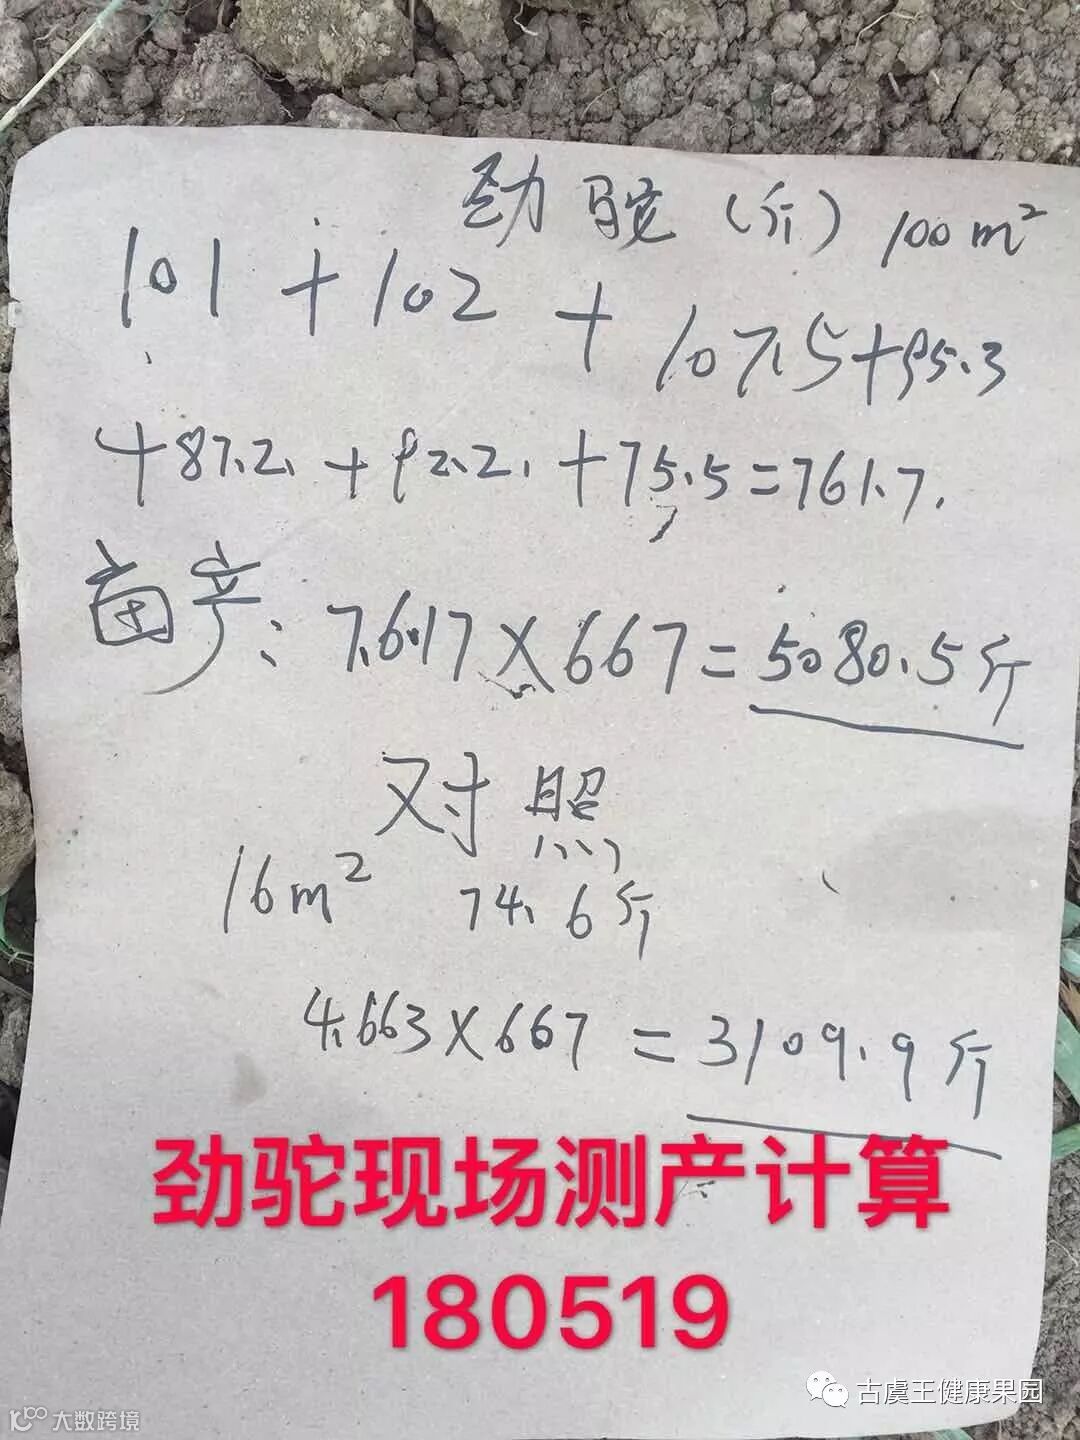 劲驼(斤) 100m²
101+102+107.5+95.3
+87.2.+92.2.+75.5=761.7.
亩产:7.617×667=5080.5斤
对照
16m² 74.6斤
4.663×667=3109.9斤
劲驼现场测产计算
180519
古虞王健康果园
大数跨境